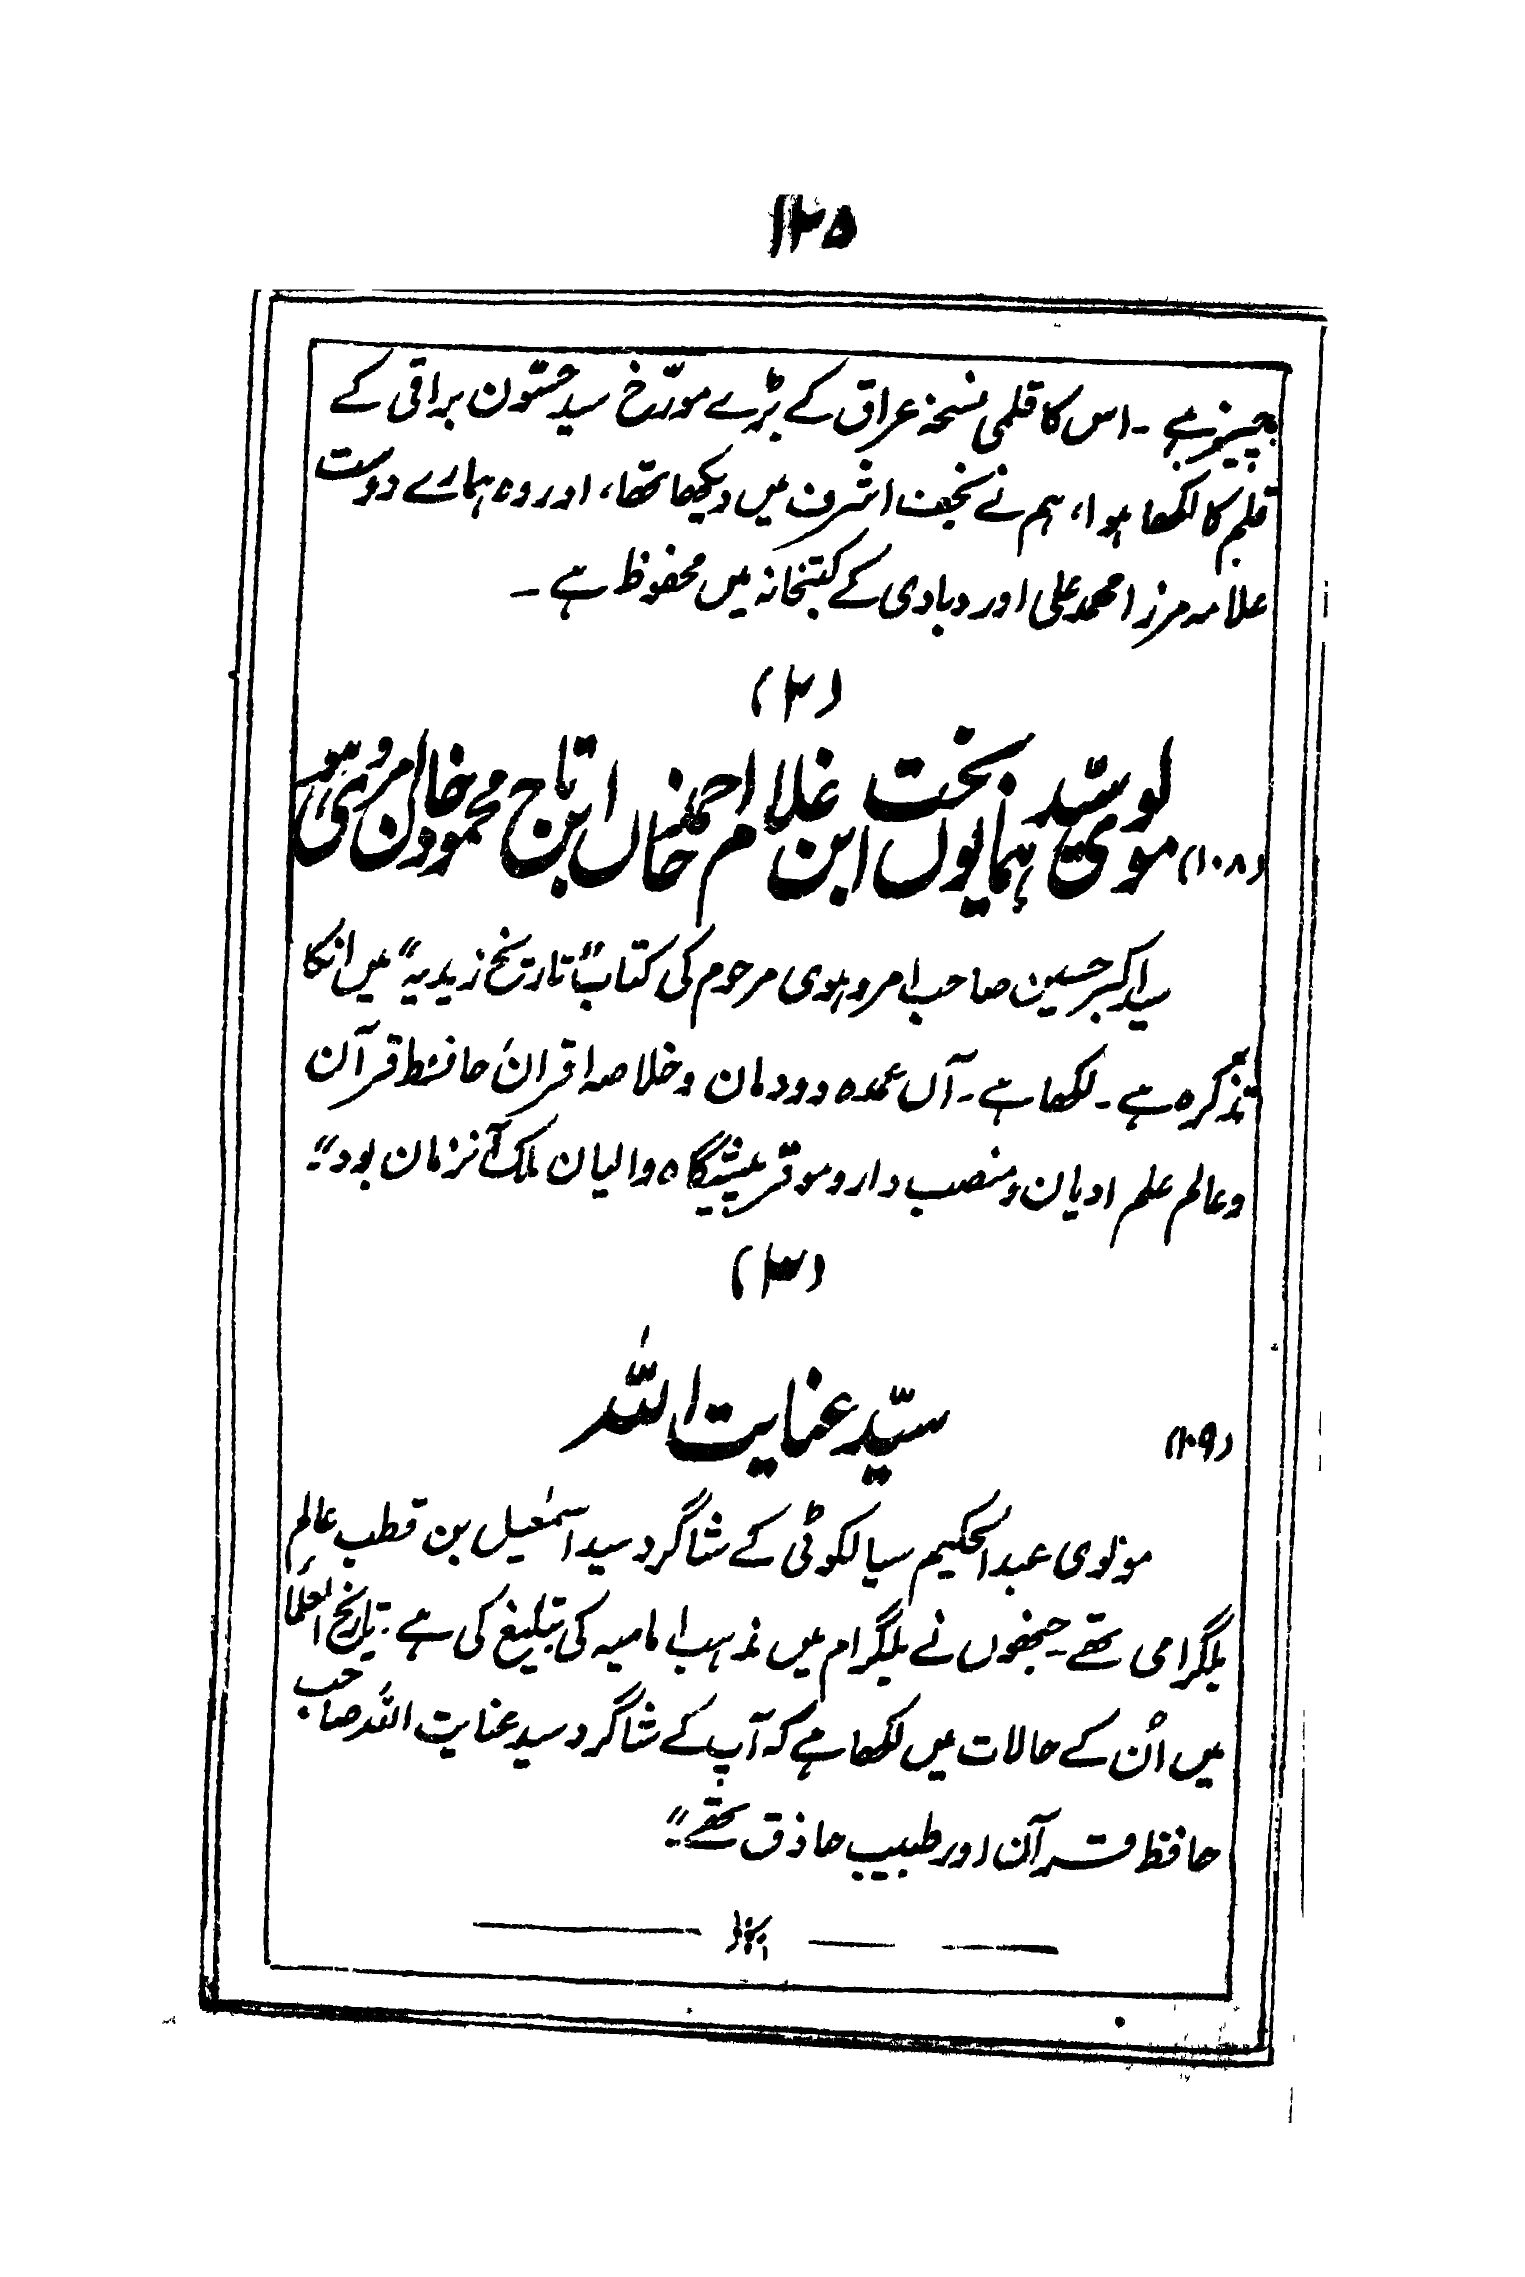 ۱۲۵
چیز ہے ۔ اس کا قلمی نسخہ عراق کے بڑے مورّخ سید حسّون براقی کے
قلم کا لکھا ہوا، ہم نے نجف اشرف میں دیکھا تھا، اور وہ ہمارے دوست
علامہ مرزا محمد علی اوردبادی کے کتبخانہ میں محفوظ ہے ۔
(۲)
(۱۰۸) مولوی سیّد ہمایوں بخت ابن غلام احمد خاں ابن تاج محمود خاں امروہوی
سید اکبر حسین صاحب امروہوی مرحوم کی کتاب "تاریخ زیدیہ" میں انکا
تذکرہ ہے ۔ لکھا ہے ۔ آں عمدہ دودمان و خلاصہ اقران حافظ قرآن
و عالم علم ادیان و منصب دار و موقر پیشگاہ والیان ملک آنزمان بود"۔
(۳)
(۱۰۹) سیّد عنایت اللہ
مولوی عبدالحکیم سیالکوٹی کے شاگرد سید اسمٰعیل بن قطب عالم
بلگرامی تھے ۔ جنھوں نے بلگرام میں مذہب امامیہ کی تبلیغ کی ہے ۔ تاریخ العلماء
میں اُن کے حالات میں لکھا ہے کہ آپ کے شاگرد سید عنایت اللہ صاحب
حافظ قرآن اور طبیب حاذق تھے"۔